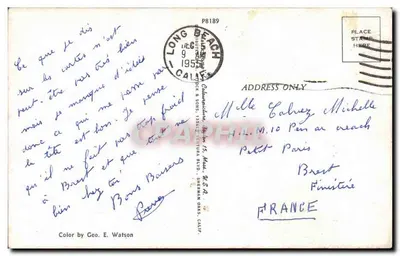 P8189
Ce que je dis
sur les cartes n'est
peut-être pas très bien
mais je manque d'idées
donc a qui me passe par
la tête est bon. Je pense
qu'il ne fait pas trop froid
à Brest et que tu
bien chez toi
Bons Baisers
LONG BEACH
DEC
9 AM
195
CALIF.
PLACE
STAMP
HERE
ADDRESS ONLY
Melle Calvez Michelle
10 Pen ar creach
Petit Paris
Brest
Finistère
FRANCE
Color by Geo. E. Watson